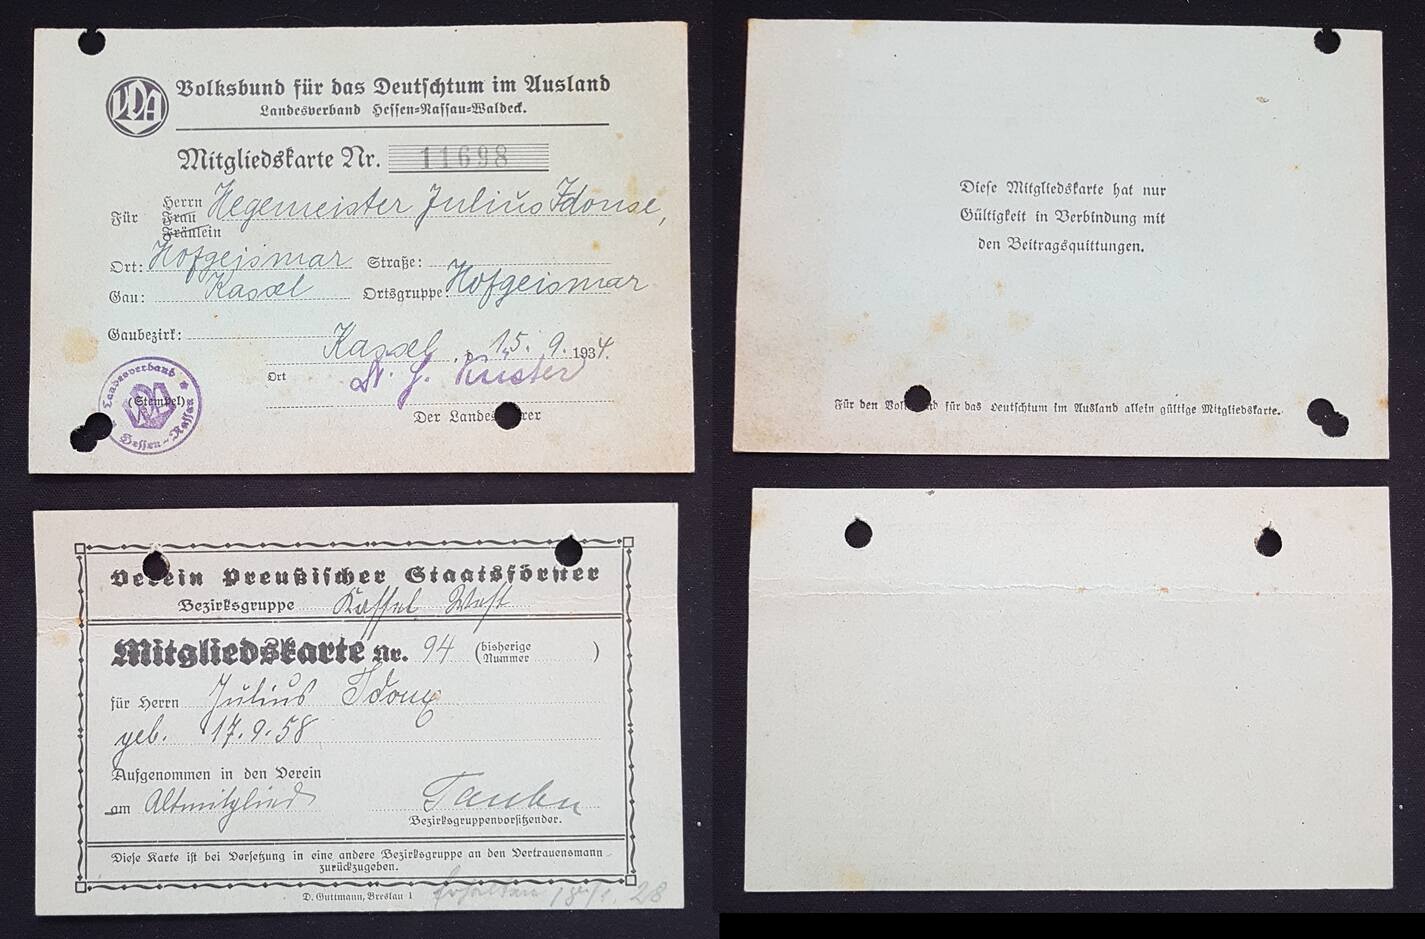 VDA
Volksbund für das Deutschtum im Ausland
Landesverband Hessen-Nassau-Waldeck.
Mitgliedskarte Nr. 11698
Für Herrn Frau Fräulein Hegemeister Julius Idonse,
Ort: Hofgeismar Straße:
Gau: Kassel Ortsgruppe: Hofgeismar
Gaubezirk:
Kassel, 15. 9. 1934.
Ort
(Stempel)
Landesverband
VDA
Hessen-Nassau
Der Landes rer
Diese Mitgliedskarte hat nur
Gültigkeit in Verbindung mit
den Beitragsquittungen.
Für den Vol nd für das Deutschtum im Ausland allein gültige Mitgliedskarte.
Verein Preußischer Staatsförster
Bezirksgruppe Kassel West
Mitgliedskarte Nr. 94 (bisherige Nummer )
für Herrn Julius
geb. 17.9.58
Aufgenommen in den Verein
am Altmitglied
Bezirksgruppenvorsitzender.
Diese Karte ist bei Versetzung in eine andere Bezirksgruppe an den Vertrauensmann
zurückzugeben.
D. Guttmann, Breslau 1
Erhalten 28